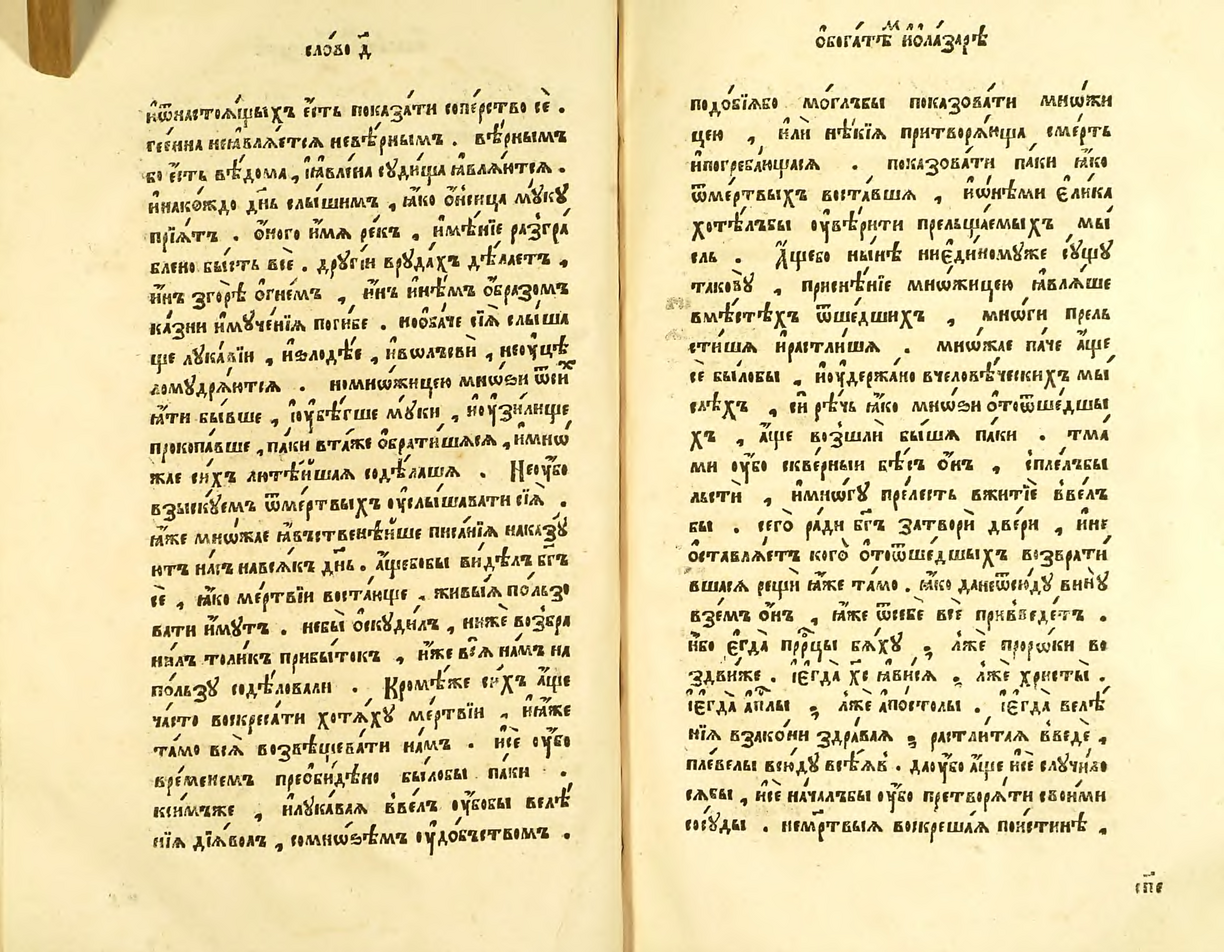 сло́во д҃
и҆ѿнастоѧ́щыхъ є҆́сть показа́ти сопе́рство сѐ .
гее́нна неꙗ҆влѧ́етсѧ невѣ́рнымъ . вѣ́рнымъ
бо є҆́сть вѣ́дома , і҆ꙗ҆влена сꙋди́ща ꙗ҆влѧ́ютсѧ .
и҆нако́ждо дн҃ь слы́шимъ , ꙗ҆́ко ѻ҆́нсица мꙋ́кꙋ
прїѧ́тъ . ѻ҆́ного и҆́мѧ ре́къ , и҆мѣ́нїе разгра
блено бы́сть всѐ . дрꙋгі́и врꙋда́хъ дѣ́лаетъ ,
и҆́нъ згорѣ̀ ѻ҆гне́мъ , и҆́нъ и҆нѣ́мъ ѻ҆́бразомъ
ка́зни и҆мꙋче́нїѧ поги́бе . нѻ҆ба́че сїѧ̀ слы́ша
ще лꙋка́вїи , и҆ѕлодѣ́е , и҆вѡлъсви́ , неоу҆цѣ
ломꙋ́дрѧютсѧ . номнѡ́жицею мнѡ́ѕи ѿси́х
ꙗ҆́ти бы́вше , і҆оу҆бѣ́гше мꙋ́ки , и҆оу҆́зилище
прокопа́вше , па́ки вта́ѧже ѻ҆брати́шасѧ , и҆мнѡ́
жае си́хъ лютѣ́йшаѧ содѣ́лашѧ . Неоу҆́бо
взы́скꙋемъ ѿме́ртвыхъ оу҆слы́шавати сїѧ̀ .
ꙗ҆́же мнѡ́жае ꙗ҆́вственѣ́йше писа́нїѧ наказꙋ́
итъ на́съ навсѧ́къ дн҃ь . а҆́щебобы ви́дѣлъ бг҃ъ
сѐ , ꙗ҆́ко ме́ртвїи воста́юще , живы́ѧ по́льзо
вати и҆́мꙋтъ . небы̀ ѻ҆скꙋди́лъ , ниже возбра
ни́лъ толи́къ прибы́токъ , и҆́же всѧ̀ на́мъ на
по́льзꙋ содѣ́ловали . Кромѣ́же си́хъ а҆́ще
ча́сто воскреса́ти хотѧ́хꙋ ме́ртвїи , и҆ꙗ҆́же
та́мо всѧ̀ возвѣща́вати на́мъ . и҆сѐ оу҆́бо
вре́менемъ преоби́дѣно бы́лобы па́ки .
ксимъ́же , и҆лꙋка́ваѧ ввѐлъ оу҆́бобы велѣ́
нїѧ дїѧ́волъ , сомнѡ́ѕѣмъ оу҆до́бъствомъ .
ѻ҆бога́тѣ и҆ѻла́зарѣ
подо́бїѧбо мо́глъбы показова́ти мнѡ́жи
цею , и҆лѝ нѣ́кїѧ притворѧ́юща сме́рть
и҆погреба́ющаѧсѧ . показова́ти па́ки ꙗ҆́ко
ѿме́ртвыхъ воста́вшѧ , и҆ѡ҆нѣ́ми є҆ли́ка
хотѣ́лъбы оу҆вѣ́рити прельща́емыхъ мы́
сль . А҆́щебо ны́нѣ ниє҆ди́номꙋже сꙋ́щꙋ
тако́вꙋ , присне́нїе мнѡ́жицею ꙗ҆влѧ́ѧше
вмѣ́стѣхъ ѿше́дшихъ , мнѡ́ги прель
сти́шѧ и҆растли́шѧ . мнѡ́жае па́че а҆́ще
сѐ бы́лобы , и҆оу҆де́ржано вчеловѣ́ческихъ мы́
слѣхъ , си́ рѣ́чь ꙗ҆́ко мнѡ́ѕи ѻ҆тоѿше́дшы
хъ , а҆́ще возшлѝ бы́шѧ па́ки . тма́
ми оу҆́бо скве́рныи бѣ́съ ѻ҆́нъ , сплѐлъбы
льстѝ , и҆мно́гꙋ пре́лесть вжитїѐ ввѐлъ
бы . сего̀ ра́ди бг҃ъ затворѝ две́ри , и҆не
ѻ҆ставлѧ́етъ кого̀ ѻ҆тоѿше́дшыхъ возврати́
вшасѧ рещѝ ꙗ҆́же та́мо . ꙗ҆́ко данеѿсю́дꙋ винꙋ̀
взе́мъ ѻ҆́нъ , ꙗ҆́же ѿсебѐ всѐ приведе́тъ .
и҆́бо є҆гда̀ прⷪ҇рцы бѧ́хꙋ , лже́ проро́ки во
здви́же . і҆є҆гда̀ хс҃ ꙗ҆ви́сѧ , лже́ христы́ .
і҆є҆гда̀ а҆пⷭ҇лы , лже́ а҆по́столы . і҆є҆гда̀ велѣ́
нїѧ взако́ни здра́ваѧ , растли́таѧ введѐ ,
пле́велы всю́дꙋ всѣ́ѧв . даоу҆́бо а҆́ще и҆сѐ слꙋчи́ло
сѧбы , и҆сѐ нача́лъбы оу҆́бо претворѧ́ти свои́ми
сосꙋ́ды . неме́ртвыѧ воскреша́ѧ пои́стинѣ ,
сп҃е